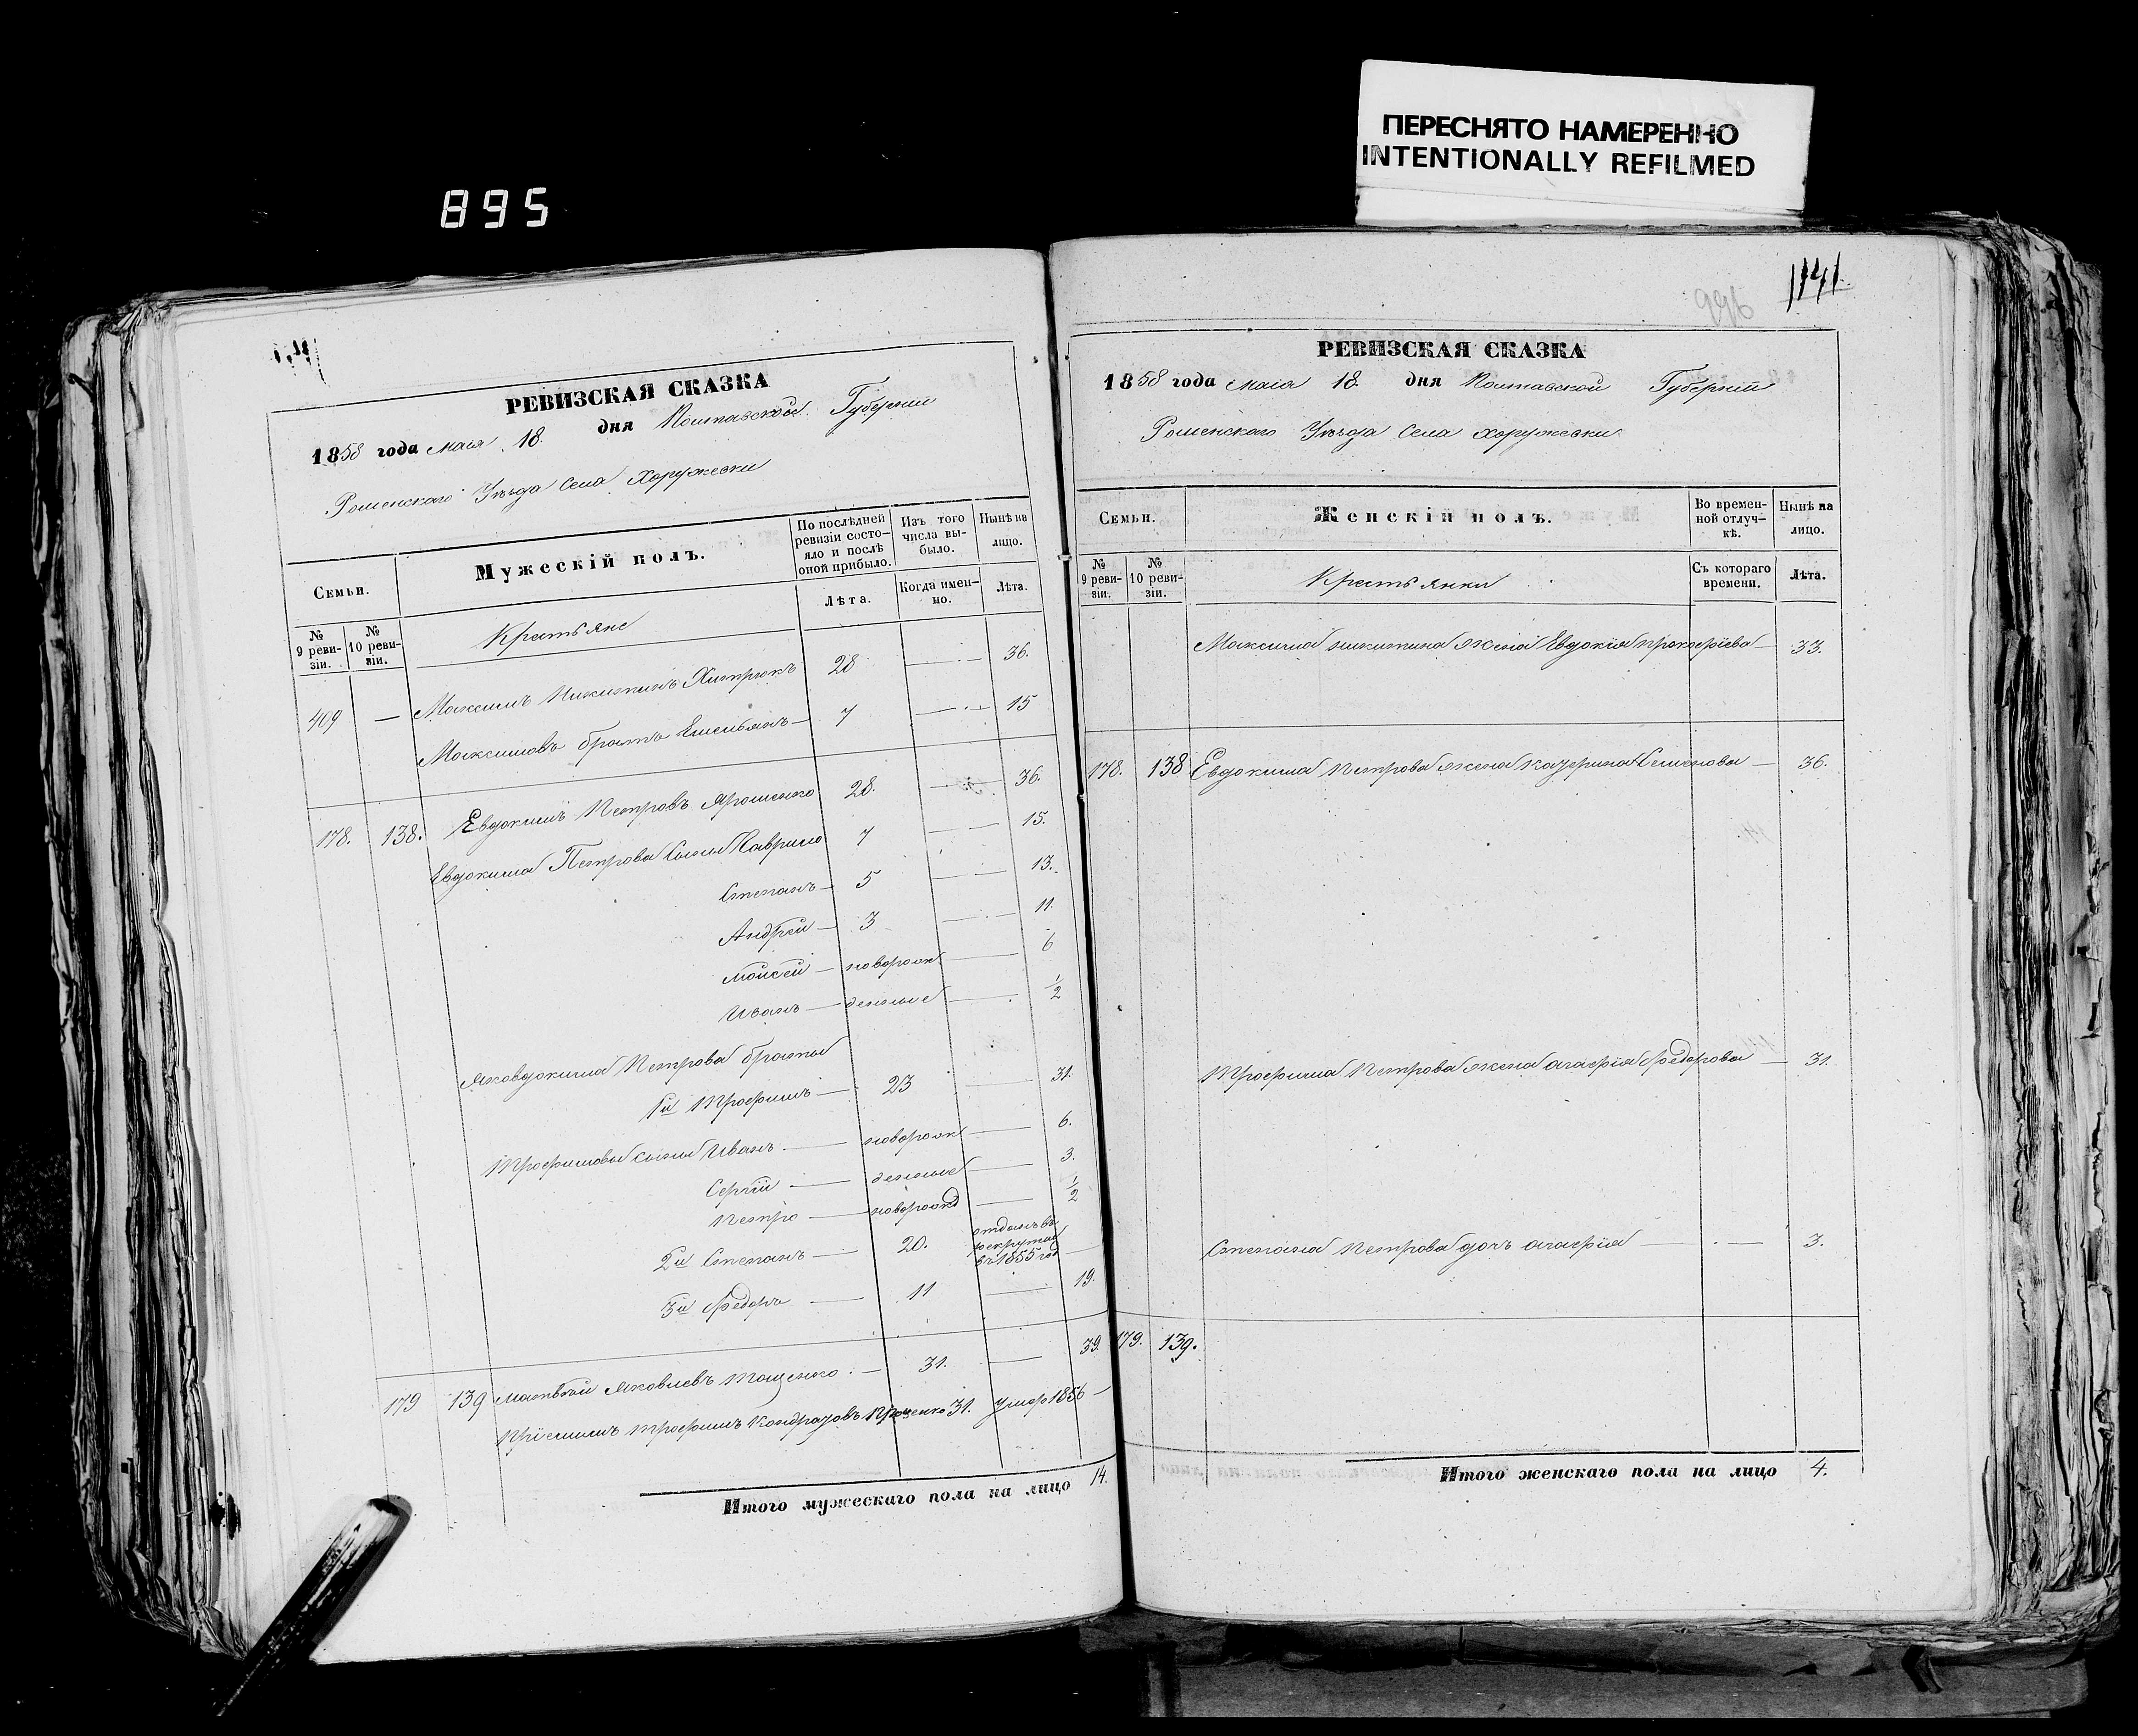 ПЕРЕСНЯТО НАМЕРЕННО
INTENTIONALLY REFILMED
895
РЕВИЗСКАЯ СКАЗКА
1858 года маія 18. дня Полтавской Губерніи
Роменскаго Уѣзда Села Хоружевки
Семьи.
Мужескій полъ.
По послѣдней ревизіи состояло и послѣ оной прибыло.
Изъ того числа выбыло.
Нынѣ на лицо.
№ 9 ревизіи.
№ 10 ревизіи.
Крестьяне
Лѣта.
Когда именно.
Лѣта.
409 — Максимъ Никитинъ Хитрюкъ 28 — 36.
Максимовъ братъ Емельянъ — 7 — 15
178. 138. Евдокимъ Петровъ Ярошенко 28. — 36.
Евдокима Петрова сыны Гаврило 7 — 15.
Степанъ — 5 — 13.
Андрей — 3 — 11.
Мойсей — новорожд — 6
Иванъ — деннные — 1/2
Евдокима Петрова братья
1й Трофимъ — 23 — 31.
Трофимовы сыны Иванъ — новорожд — 6.
Сергій — деннные — 3.
Петро — новорожд — 1/2
2й Степанъ — 20. отданъ въ рекруты въ 1855 год —
3й Федоръ — 11 — 19.
179 139 Матвѣй Яковлевъ Тощенко — 31. — 39.
Пріемышъ Трофимъ Кондратовъ Проценко 31. умер 1856 —
Итого мужескаго пола на лицо 14.
996
1141.
РЕВИЗСКАЯ СКАЗКА
1858 года маія 18. дня Полтавской Губерніи
Роменскаго Уѣзда Села Хоружевки
Семьи.
Женскій полъ.
Во временной отлучкѣ.
Нынѣ на лицо.
№ 9 ревизіи.
№ 10 ревизіи.
Крестьянки
Съ котораго времени.
Лѣта.
Максима Никитина жена Евдокія Прокофіева — 33.
178. 138 Евдокима Петрова жена Катерина Семенова — 36.
Трофима Петрова жена Агафія Федорова — 31.
Степана Петрова дочь Агафія — 3.
179. 139.
Итого женскаго пола на лицо 4.